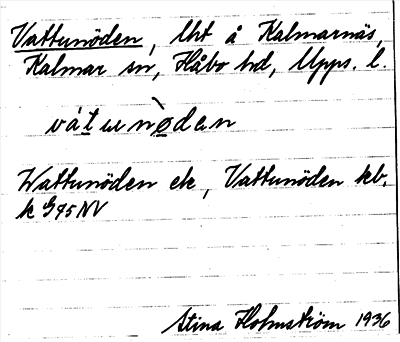 Vattunöden, lht å Kalmarnäs,
Kalmar sn, Håbo hd, Upps. l.
Wattunöden ek, Vattunöden kb,
k G95NV
Stina Holmström 1936